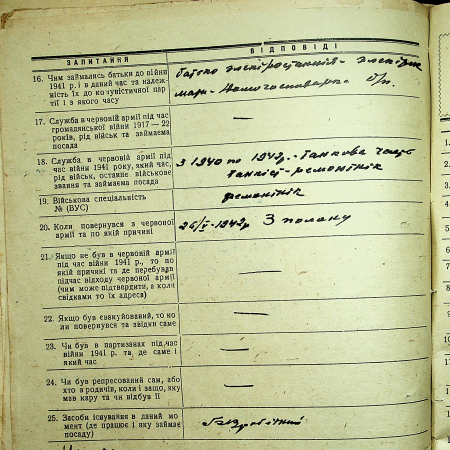 ЗАПИТАННЯ ВІДПОВІДІ
16. Чим займались батьки до війни
1941 р. і в даний час та належ-
ність їх до комуністичної пар
тії і з якого часу
батько
мати - б/п.
17. Служба в червоній армії під час
громадянської війни 1917—22
років, рід військ та займаєма
посада
—
18. Служба в червоній армії під
час війни 1941 року, який час,
рід військ, останнє військове
звання та займаєма посада
з 1940 по 1942р. - Танкова часть
танкіст-ремонтнік
19. Військова спеціальність
№ (ВУС)
ремонтнік
20. Коли повернувся з червоної
армії та по якій причині
26/V-1942р З полону
21. Якщо не був в червоній армії
під час війни 1941 р., то по
якій причині та де перебував
підчас відходу червоної армії
(чим може підтвердити, а коли
свідками то їх адреса)
22. Якщо був евакуйований, то ко
ли повернувся та звідки саме
—
23. Чи був в партизанах під час
війни 1941 р. та де саме і
який час
—
24. Чи був репресований сам, або
хто з родичів, коли і защо, яку
мав кару та чи відбув її
—
25. Засоби існування в даний мо
мент (де працює і яку займає
посаду)
безробітний